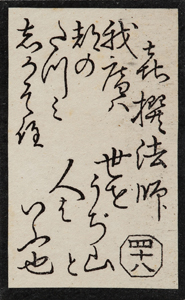 喜撰法師
我庵ハ
都の
たつミ
しかそ住
世を
うぢ山と
人は
いふ也
四十八